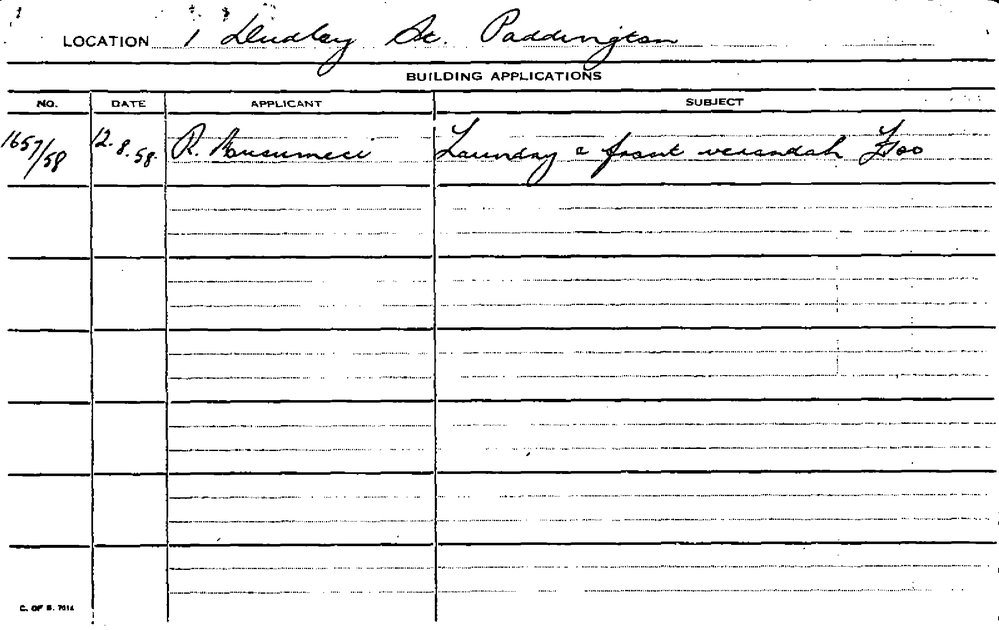 LOCATION 1 Dudley St. Paddington
BUILDING APPLICATIONS
NO. DATE APPLICANT SUBJECT
1657/58 12.8.58. R. Busumeci Laundry & front verandah £100
C. OF S. 7014